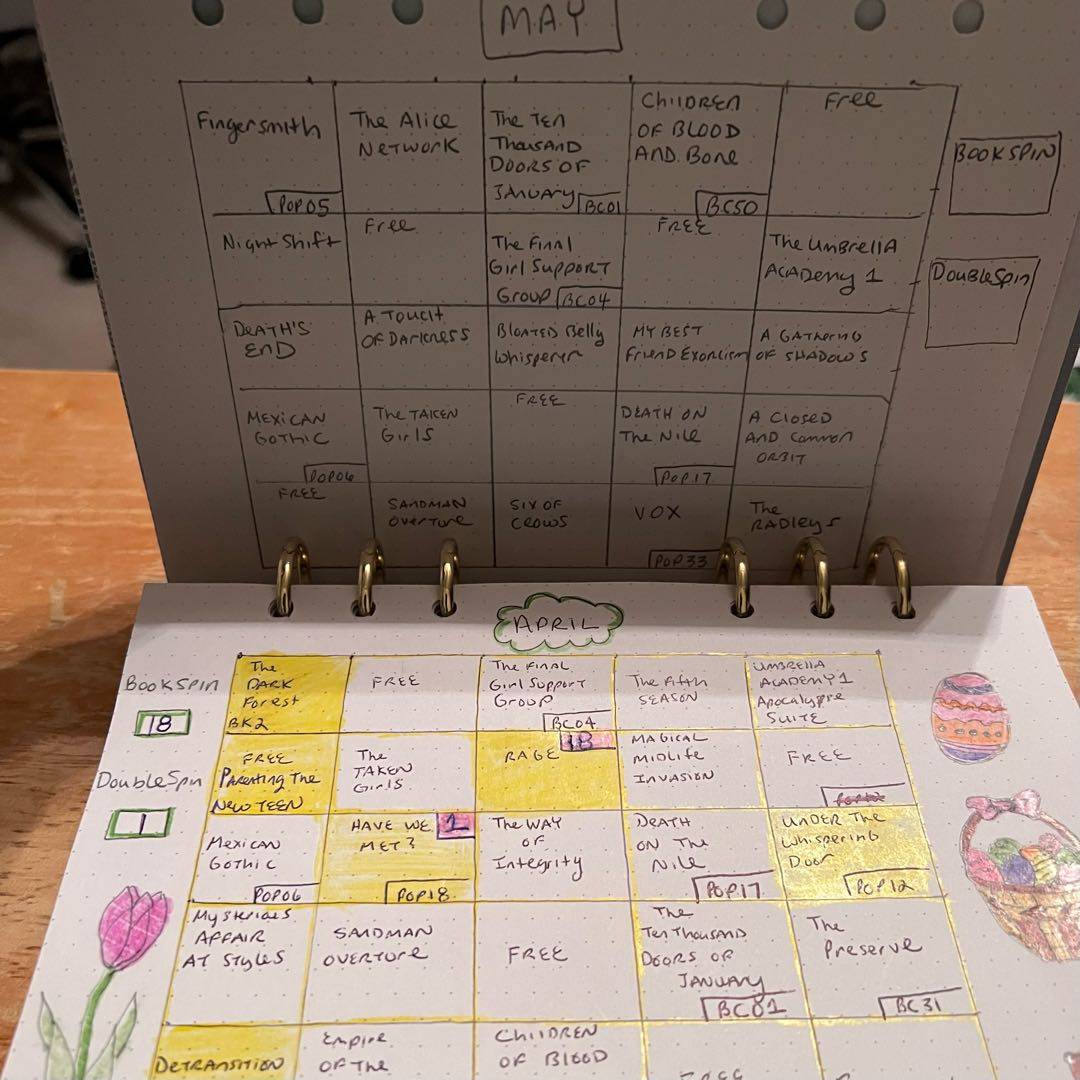 MAY
Fingersmith
POP05
The Alice
Network
The Ten
Thousand
Doors of
January
BC01
Children
of Blood
and Bone
BC50
Free
BOOKSPIN
Night Shift
Free
The Final
Girl Support
Group
BC04
FREE
The Umbrella
Academy 1
DoubleSpin
Death's
End
A Touch
of Darkness
Bloated Belly
Whisperer
My Best
Friend Exorcism
A Gathering
of Shadows
Mexican
Gothic
POP06
The Taken
Girls
FREE
Death on
The Nile
POP17
A Closed
and Common
Orbit
FREE
Sandman
Overture
Six of
Crows
VOX
POP33
The
Radleys
APRIL
BookSpin
18
DoubleSpin
1
The
Dark
Forest
BK2
FREE
The Final
Girl Support
Group
BC04
The Fifth
Season
Umbrella
Academy 1
Apocalypse
Suite
FREE
Parenting The
New Teen
The
Taken
Girls
RAGE
18
Magical
Midlife
Invasion
FREE
Mexican
Gothic
POP06
Have We
Met?
1
POP18
The Way
of
Integrity
Death
on The
Nile
POP17
Under The
Whispering
Door
POP12
Mysterious
Affair
at Styles
Sandman
Overture
FREE
The
Ten Thousand
Doors of
January
BC01
The
Preserve
BC31
Detransition
Empire
of the
Children
of Blood
FREE